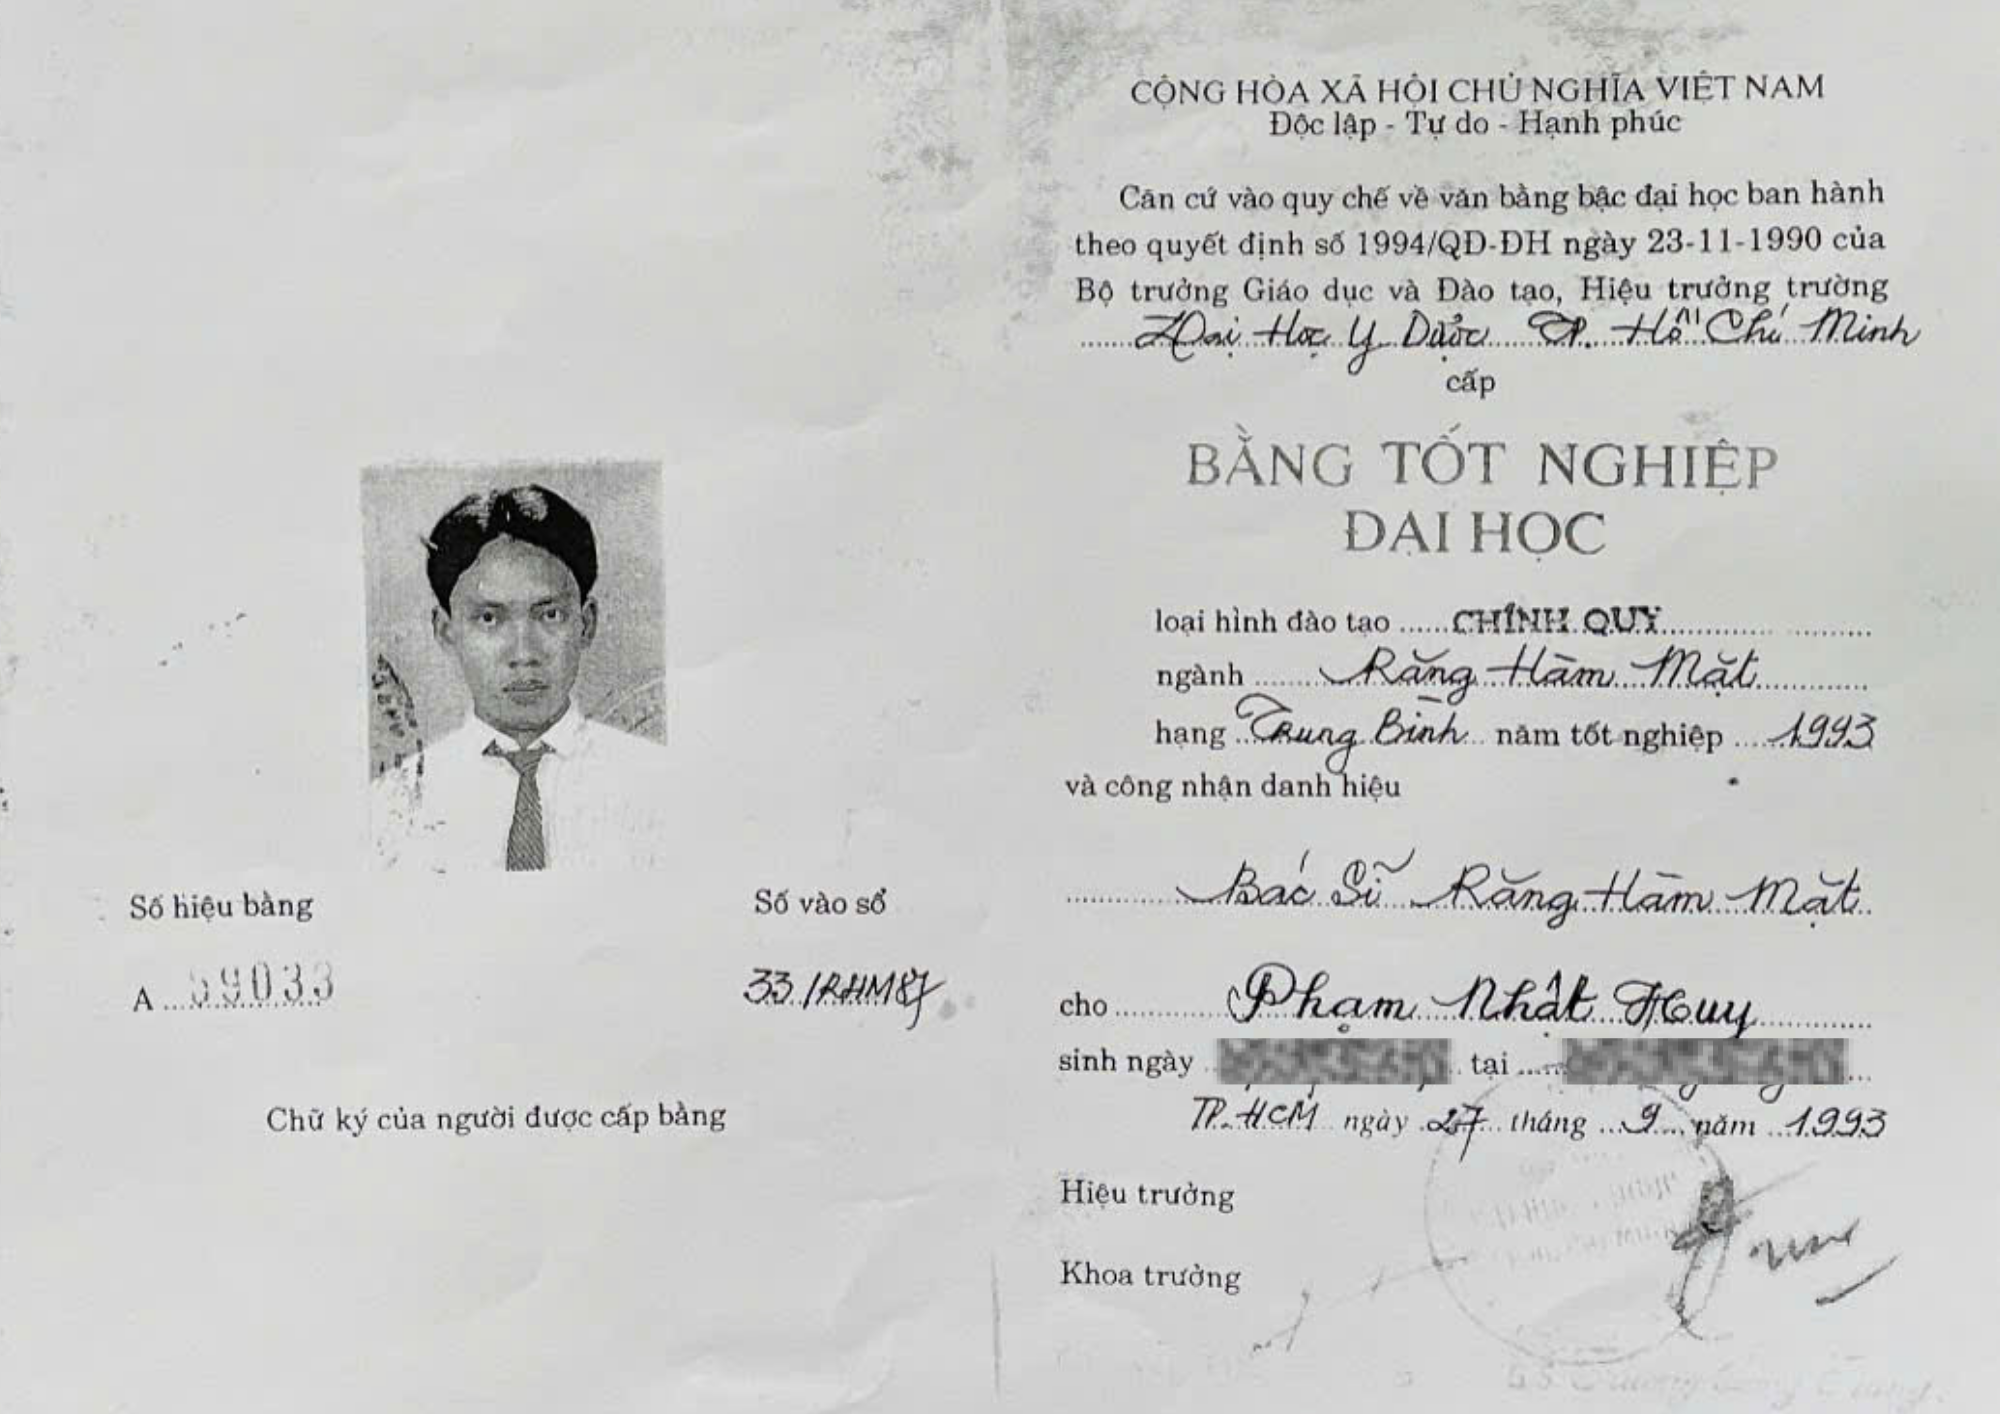 CỘNG HÒA XÃ HỘI CHỦ NGHĨA VIỆT NAM
Độc lập - Tự do - Hạnh phúc
Căn cứ vào quy chế về văn bằng bậc đại học ban hành
theo quyết định số 1994/QD-ĐH ngày 23-11-1990 của
Bộ trưởng Giáo dục và Đào tạo, Hiệu trưởng trường
Đại Học Y Dược TP. Hồ Chí Minh
cấp
BẰNG TỐT NGHIỆP
ĐẠI HỌC
loại hình đào tạo CHÍNH QUY
ngành Răng Hàm Mặt
hạng Trung Bình năm tốt nghiệp 1993
và công nhận danh hiệu
Bác Sĩ Răng Hàm Mặt
cho Phạm Nhật Huy
sinh ngày tại
TP. HCM ngày 27 tháng 9 năm 1993
Hiệu trưởng
Khoa trưởng
Số hiệu bằng
A 59033
Số vào sổ
33/RHM87
Chữ ký của người được cấp bằng